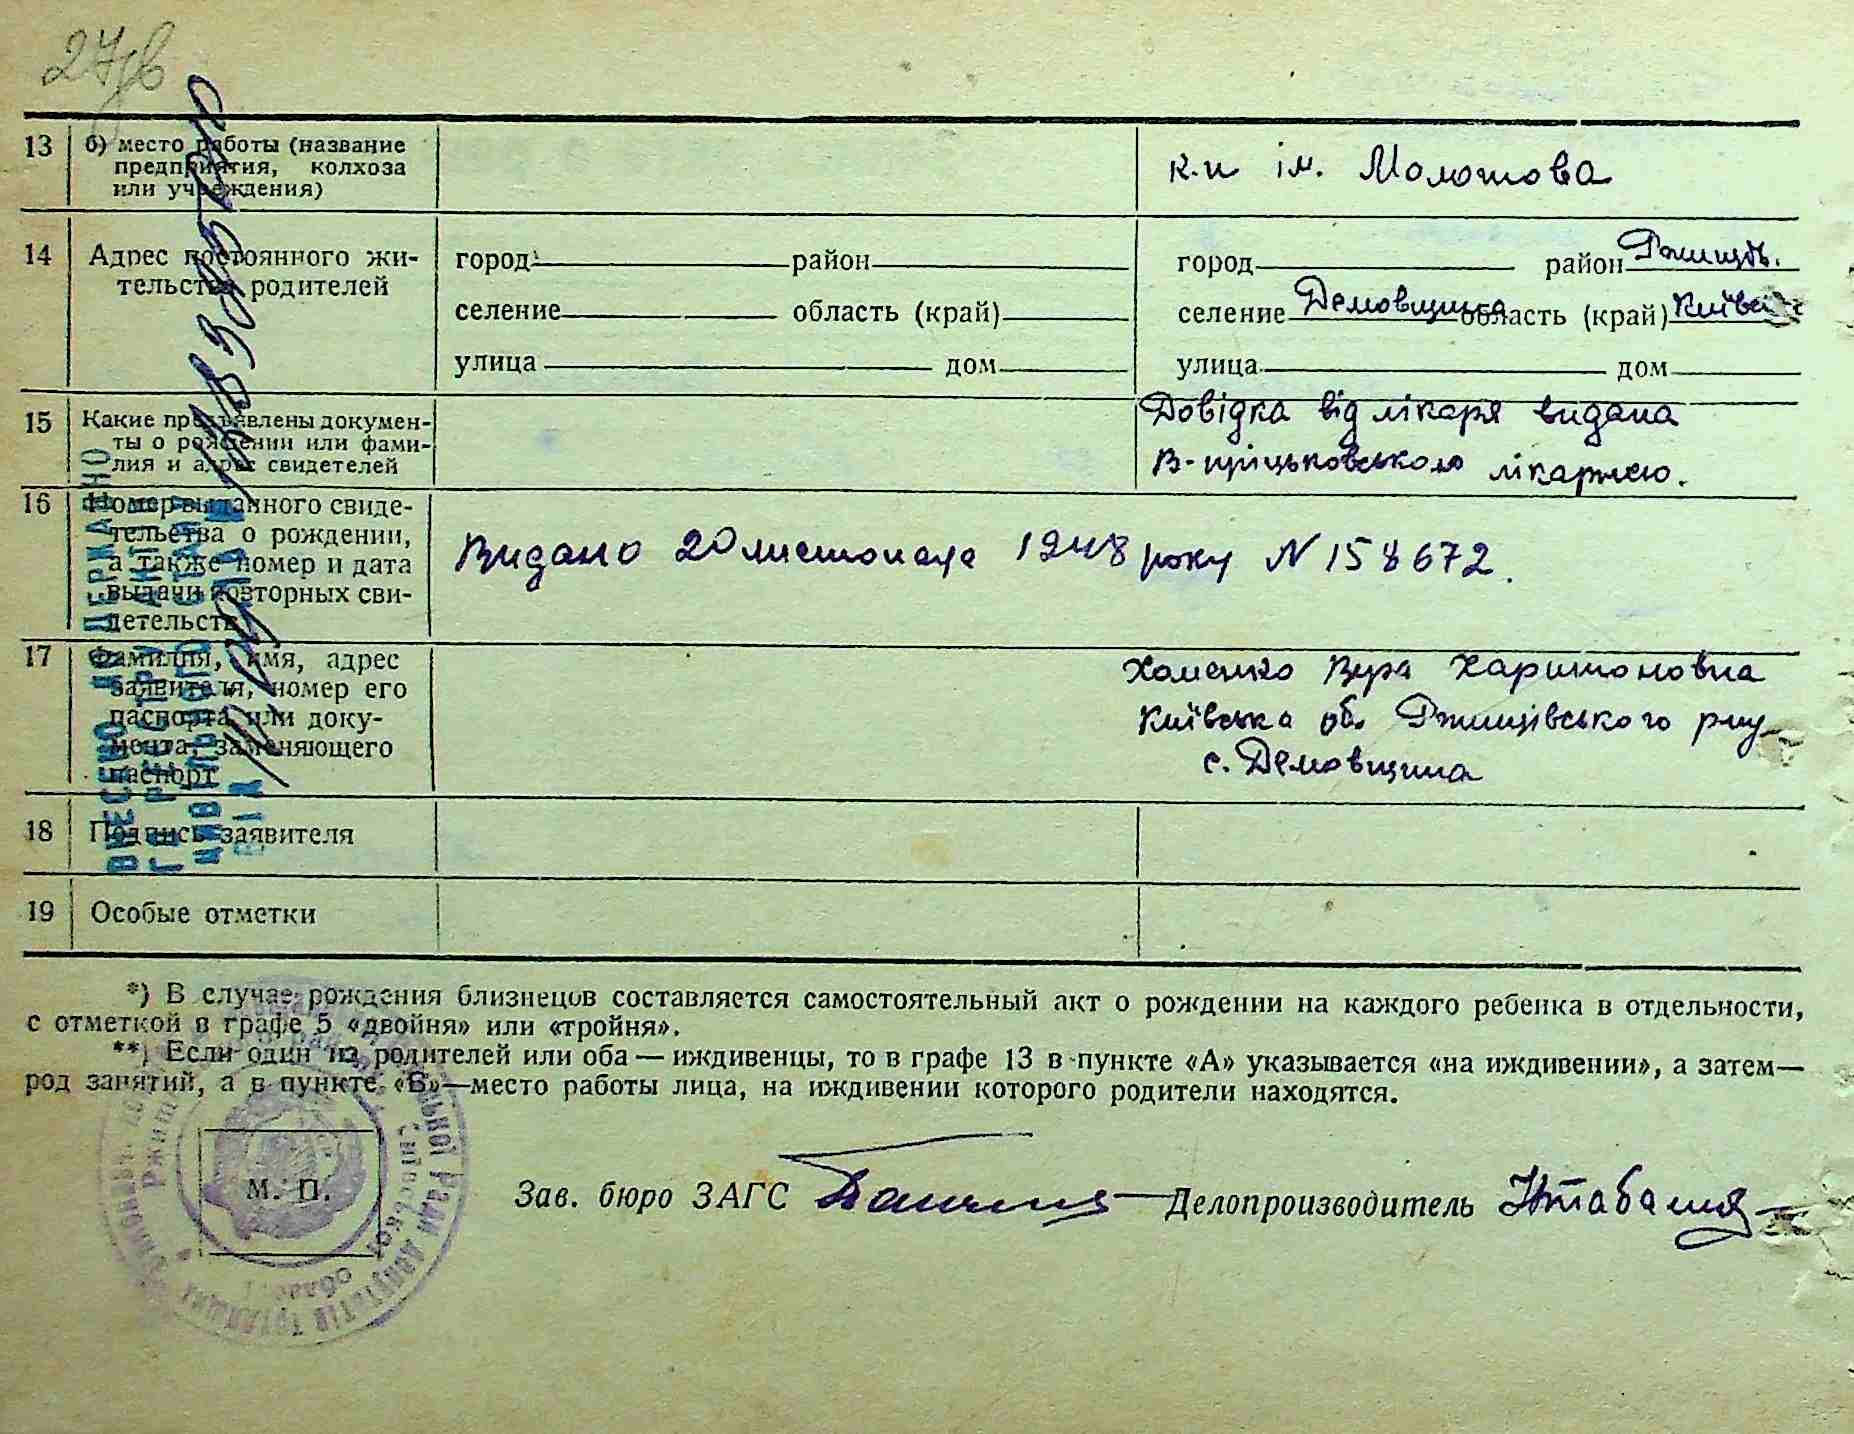 27зв
13 б) место работы (название
предприятия, колхоза
или учреждения)
к-п ім. Молотова
14 Адрес постоянного жи-
тельства родителей
город район
селение область (край)
улица дом
город район Ржищів.
селение Демовщина область (край) Київс
улица дом
15 Какие предъявлены докумен-
ты о рождении или фами-
лия и адрес свидетелей
Довідка від лікаря видана
В-пріцьковською лікарнею.
16 Номер выданного свиде-
тельства о рождении,
а также номер и дата
выдачи повторных сви-
детельств
Видано 20 листопада 1948 року N 158672.
17 Фамилия, имя, адрес
заявителя, номер его
паспорта или доку-
мента, заменяющего
паспорт
Хоменко Віра Харитоновна
Київська об. Ржищівського р-ну
с. Демовщина
18 Подпись заявителя
19 Особые отметки
ВНЕСЕНО ДО ДЕРЖАВНО
ГО РЕЄСТРУ АКТІВ
ЦИВІЛЬНОГО СТАНУ
ВІД
*) В случае рождения близнецов составляется самостоятельный акт о рождении на каждого ребенка в отдельности,
с отметкой в графе 5 «двойня» или «тройня».
**) Если один из родителей или оба — иждивенцы, то в графе 13 в пункте «А» указывается «на иждивении», а затем—
род занятий, а в пункте «В»—место работы лица, на иждивении которого родители находятся.
М. П.
Зав. бюро ЗАГС Делопроизводитель